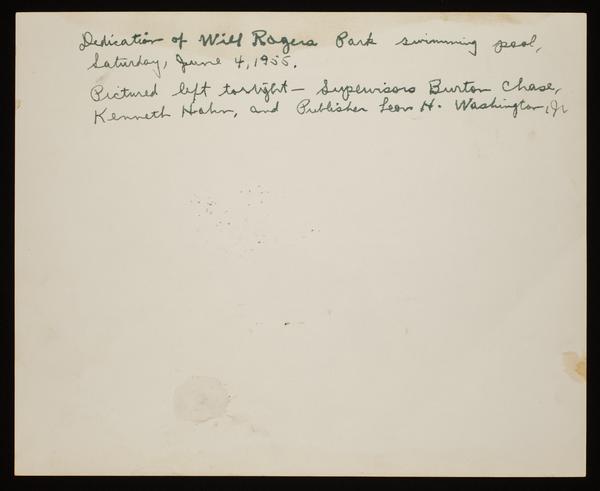 Dedication of Will Rogers Park swimming pool,
Saturday, June 4, 1955.
Pictured left to right — Supervisors Burton Chase,
Kenneth Hahn, and Publisher Leon H. Washington, Jr